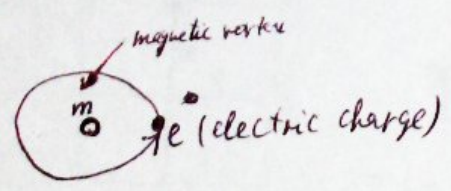 magnetic vortex
m
e (electric charge)